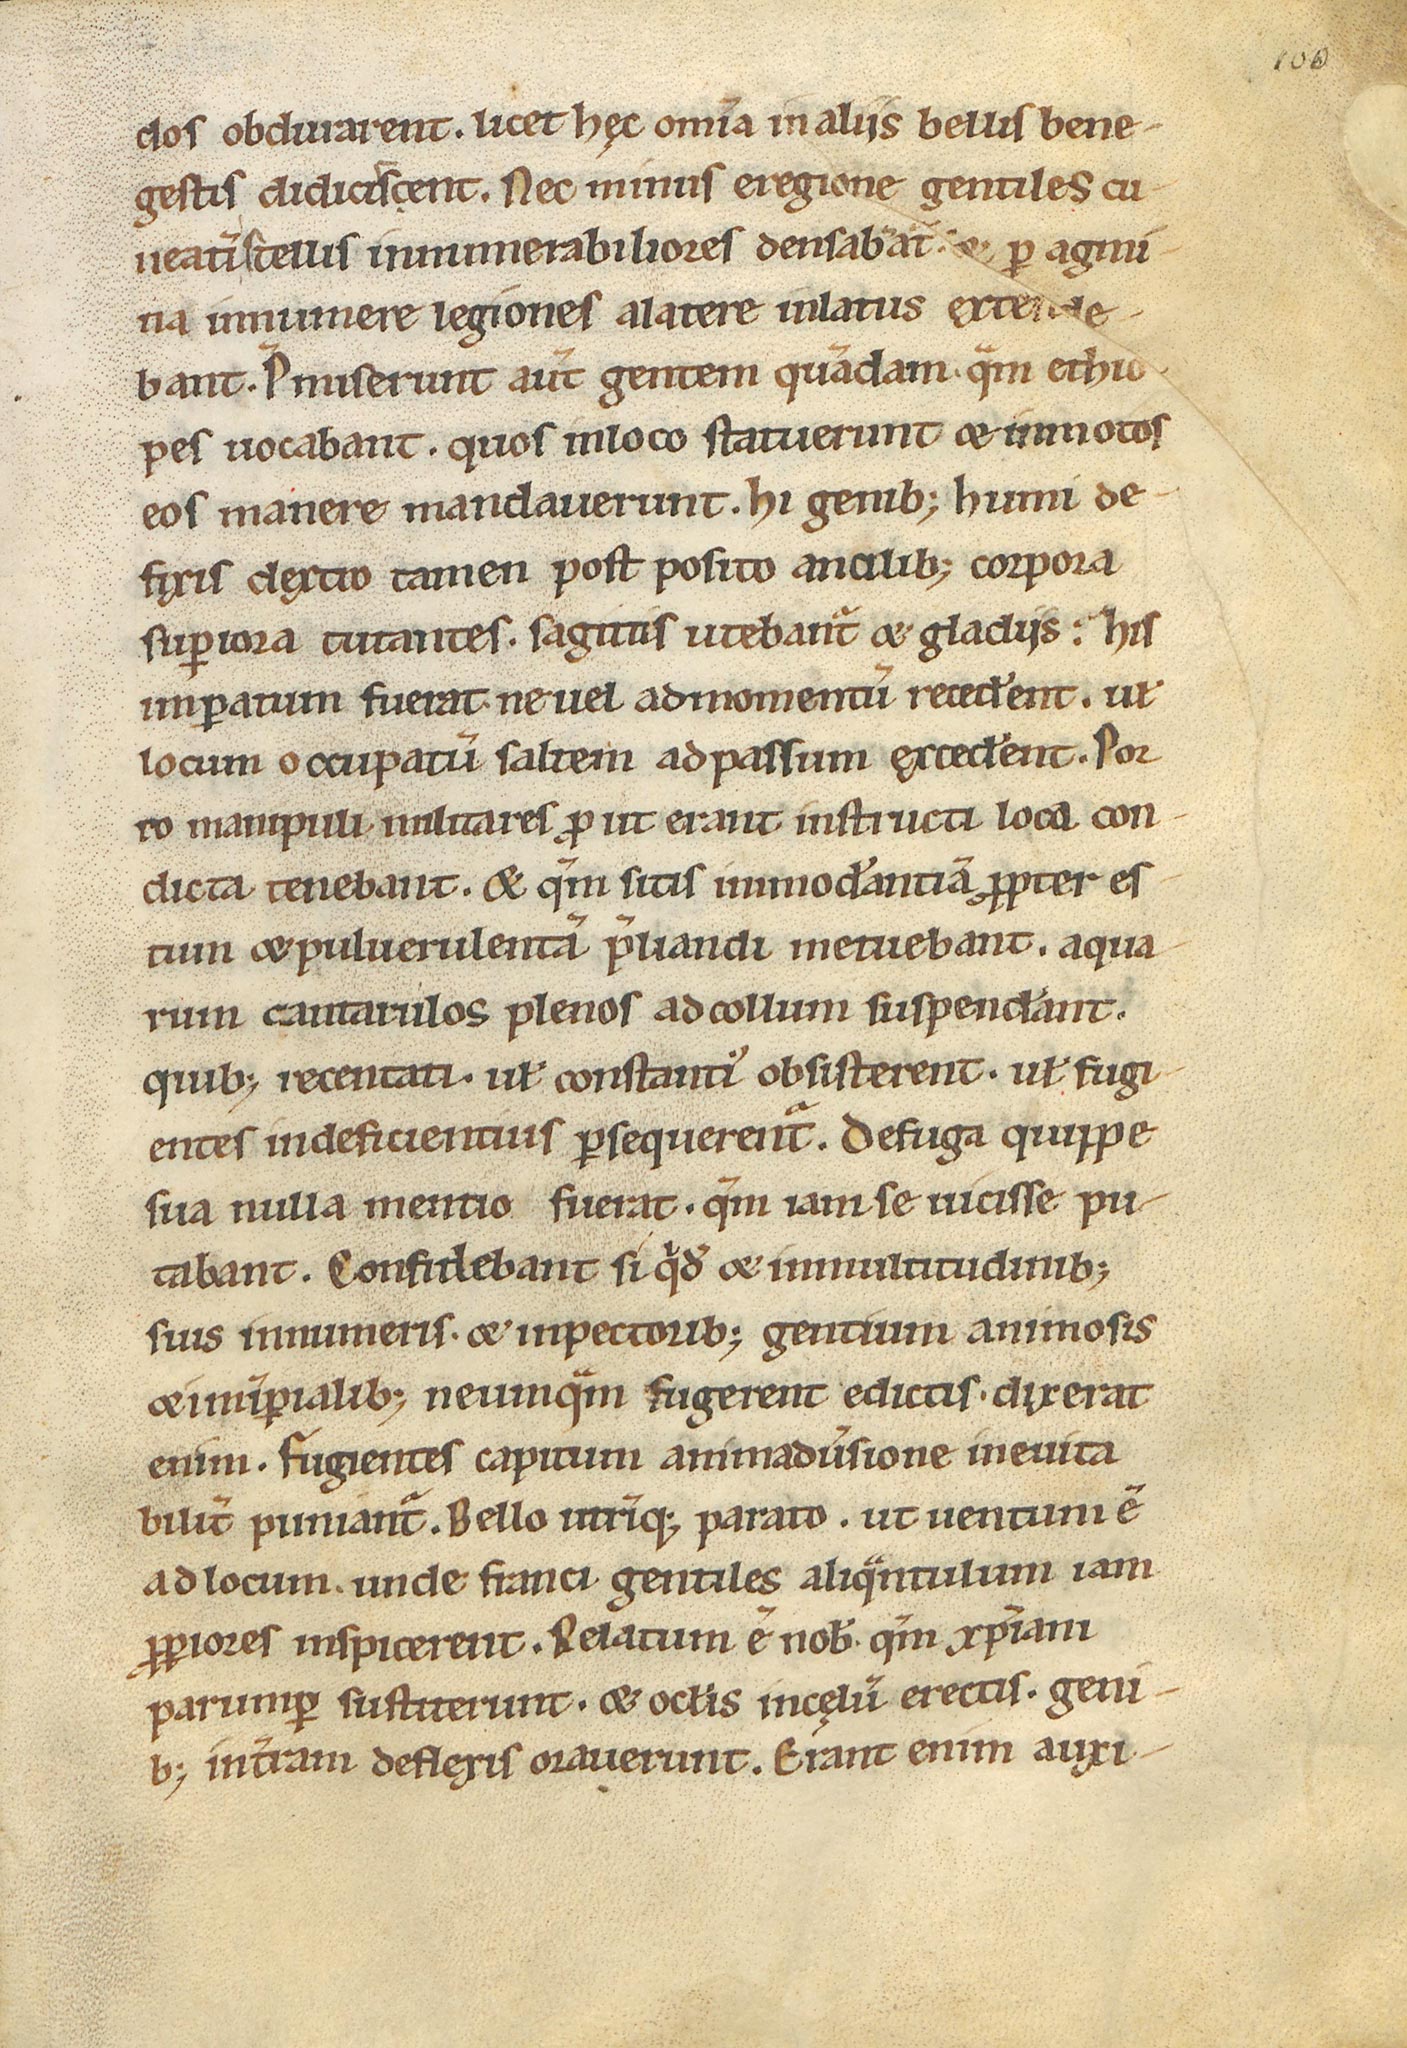 100
dos obdurarent. licet hęc om̄a in aliis bellis bene-
gestis didicis̄cent. Nec minus e regione gentiles cu-
neati stellis innumerabiliores densabāt: & ꝑ agmi-
na innumere legiones a latere in latus extende-
bant. P̄miserunt aūt gentem quādam. qm̄ ethio-
pes uocabant. quos in loco statuerunt & inmotos
eos manere mandauerunt. hi genib; humi de-
fixis dextro tamen post posito ancilib; corpora
suꝑiora tutantes. sagittis utebant᷑ & gladiis: his
imꝑatum fuerat. ne uel ad momentū reced̄ent. ut̄
locum occupatū saltem ad passum exced̄ent. Por
ro manipuli militares ꝓ ut erant instructi loca con-
dicta tenebant. & qm̄ sitis immod̄antiā ꝓpter es-
tum & puluerulentā p̄liandi metuebant. aqua-
rum cantarulos plenos ad collum suspend̄ant.
quib; recentati. ut̄ constanti᷑ obsisterent. ut̄ fugi-
entes indeficientius ꝑsequerent᷑. De fuga quippe
sua nulla mentio fuerat. qm̄ iam se uicisse pu-
tabant. Confidebant si qd̄ & in multitudinib;
suis innumeris. & in pectorib; gentium animosis
& imꝑialib; ne umqm̄ fugerent edictis. dixerat
enim. Fugientes capitum animadūsione ineuita
bilit̄ puniant᷑. Bello utriq; parato. ut uentum ē
ad locum. unde franci gentiles aliqntulum iam
ꝓpiores inspicerent. Relatum ē nob̄. qm̄ xp̄iani
parumꝑ sustiterunt. & oc̄lis in cęlū erectis. geni-
b; in t̄ram deflexis orauerunt. Erant enim auxi-